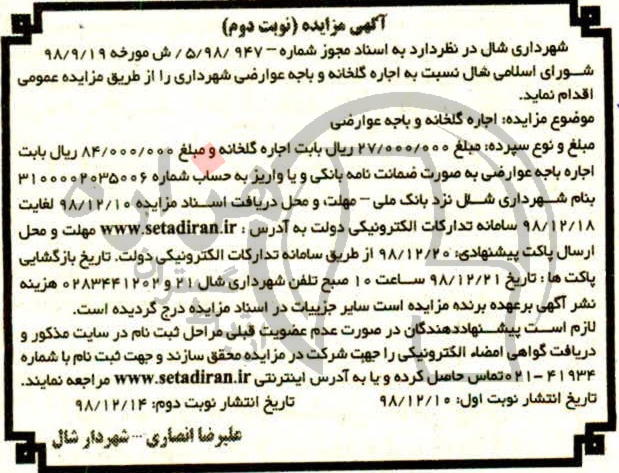 آگهی مزایده (نوبت دوم)
شهرداری شال در نظردارد به اسناد مجوز شماره - ۹۴۷ /۵/۹۸/ ش مورخه ۹۸/۹/۱۹
شورای اسلامی شال نسبت به اجاره گلخانه و باجه عوارضی شهرداری را از طریق مزایده عمومی
اقدام نماید.
موضوع مزایده: اجاره گلخانه و باجه عوارضی
مبلغ و نوع سپرده: مبلغ ۲۷/۰۰۰/۰۰۰ ریال بابت اجاره گلخانه و مبلغ ۸۴/۰۰۰/۰۰۰ ریال بابت
اجاره باجه عوارضی به صورت ضمانت نامه بانکی و یا واریز به حساب شماره ۳۱۰۰۰۰۲۰۳۵۰۰۶
بنام شهرداری شال نزد بانک ملی - مهلت، و محل دریافت اسناد مزایده ۹۸/۱۲/۱۰ لغایت
۹۸/۱۲/۱۸ سامانه تدارکات الکترونیکی دولت به آدرس : www.setadiran.ir مهلت و محل
ارسال پاکت پیشنهادی: ۹۸/۱۲/۲۰ از طریق سامانه تدارکات الکترونیکی دولت. تاریخ بازگشایی
پاکت ها : تاریخ ۹۸/۱۲/۲۱ ساعت ۱۰ صبح تلفن شهرداری شال ۲۱ و ۰۲۸۳۴۴۱۲۰۲ هزینه
نشر آگهی برعهده برنده مزایده است سایر جزییات در اسناد مزایده درج گردیده است.
لازم است پیشنهاددهندگان در صورت عدم عضویت قبلی مراحل ثبت نام در سایت مذکور و
دریافت گواهی امضاء الکترونیکی را جهت شرکت در مزایده محقق سازند و جهت ثبت نام با شماره
۰۲۱-۴۱۹۳۴ تماس حاصل کرده و یا به آدرس اینترنتی www.setadiran.ir مراجعه نمایند.
تاریخ انتشار نوبت اول: ۹۸/۱۲/۱۰ تاریخ انتشار نوبت دوم: ۹۸/۱۲/۱۴
علیرضا انصاری - شهردار شال